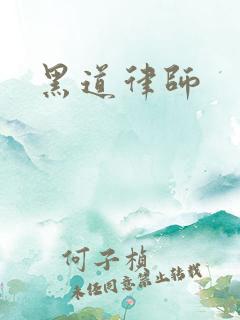 黑道律師
何子楨
未经同意禁止转载